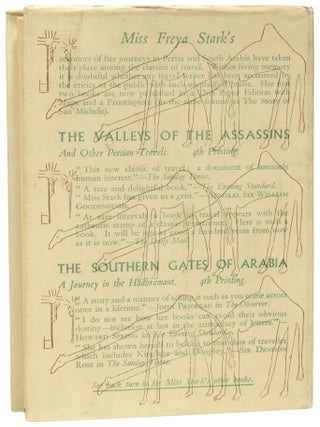 Miss Freya Stark's
accounts of her journeys in Persia and South Arabia have taken
their place among the classics of travel. Within living memory
it is doubtful whether any travel writer has been acclaimed by
the critics or the public with such unanimous praise. Her first
two books are now published in a Cheap Edition with
Maps and a Frontispiece (in the same format as The Story of
San Michele).
THE VALLEYS OF THE ASSASSINS
And Other Persian Travels. 4th Printing.
"This new classic of travel; a document of intensely
human interest."—The Sunday Times.
"A rare and delightful book."—Evening Standard.
"Miss Stark has given us a gem."—ADMIRAL SIR WILLIAM
GOODENOUGH.
"At rare intervals a book of travel appears with the
authentic stamp of a classic upon it. Here is such a
book. It will be read a hundred years from now
as it is now."—The Daily Mail.
THE SOUTHERN GATES OF ARABIA
A Journey in the Hadhramaut. 4th Printing.
"A story and a manner of telling it such as you come across
once in a lifetime."—JOHN PRIOLEAU in The Observer.
"I do not see how her books can avoid their obvious
destiny—inclusion at last in the aristocracy of letters."—
HOWARD SPRING in The Evening Standard.
"She has shown herself to belong to that class of travellers
which includes Kinglake and Doughty."—SIR DENISON
ROSS in The Sunday Times.
See back turn-in for Miss Stark's other books.